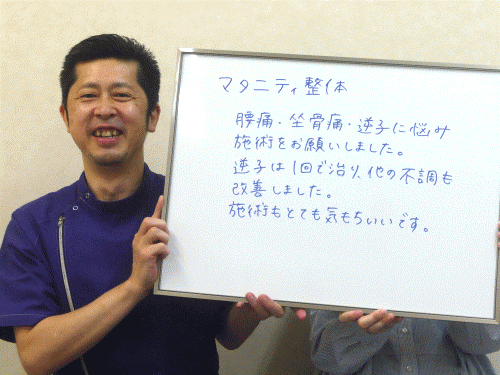 マタニティ整体
腰痛・坐骨痛・逆子に悩み
施術をお願いしました。
逆子は1回で治り、他の不調も
改善しました。
施術もとても気もちいいです。